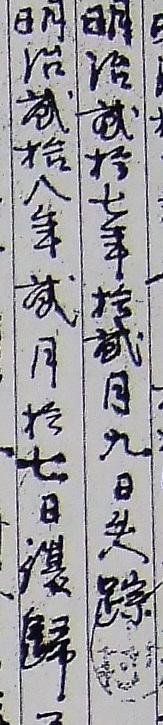 明治貳拾七年拾貳月九日失踪
明治貳拾八年貳月拾七日復歸